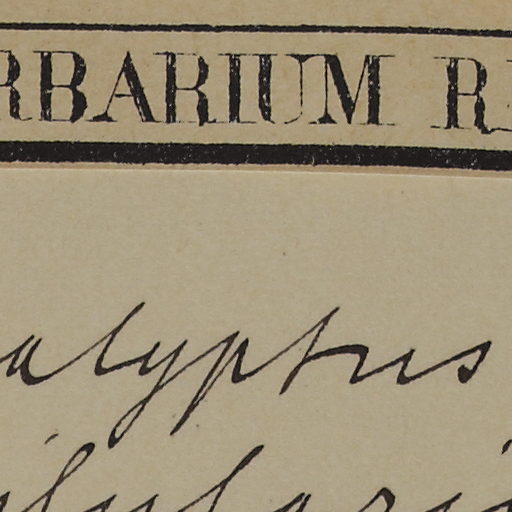 RBARIUM R
alyptus